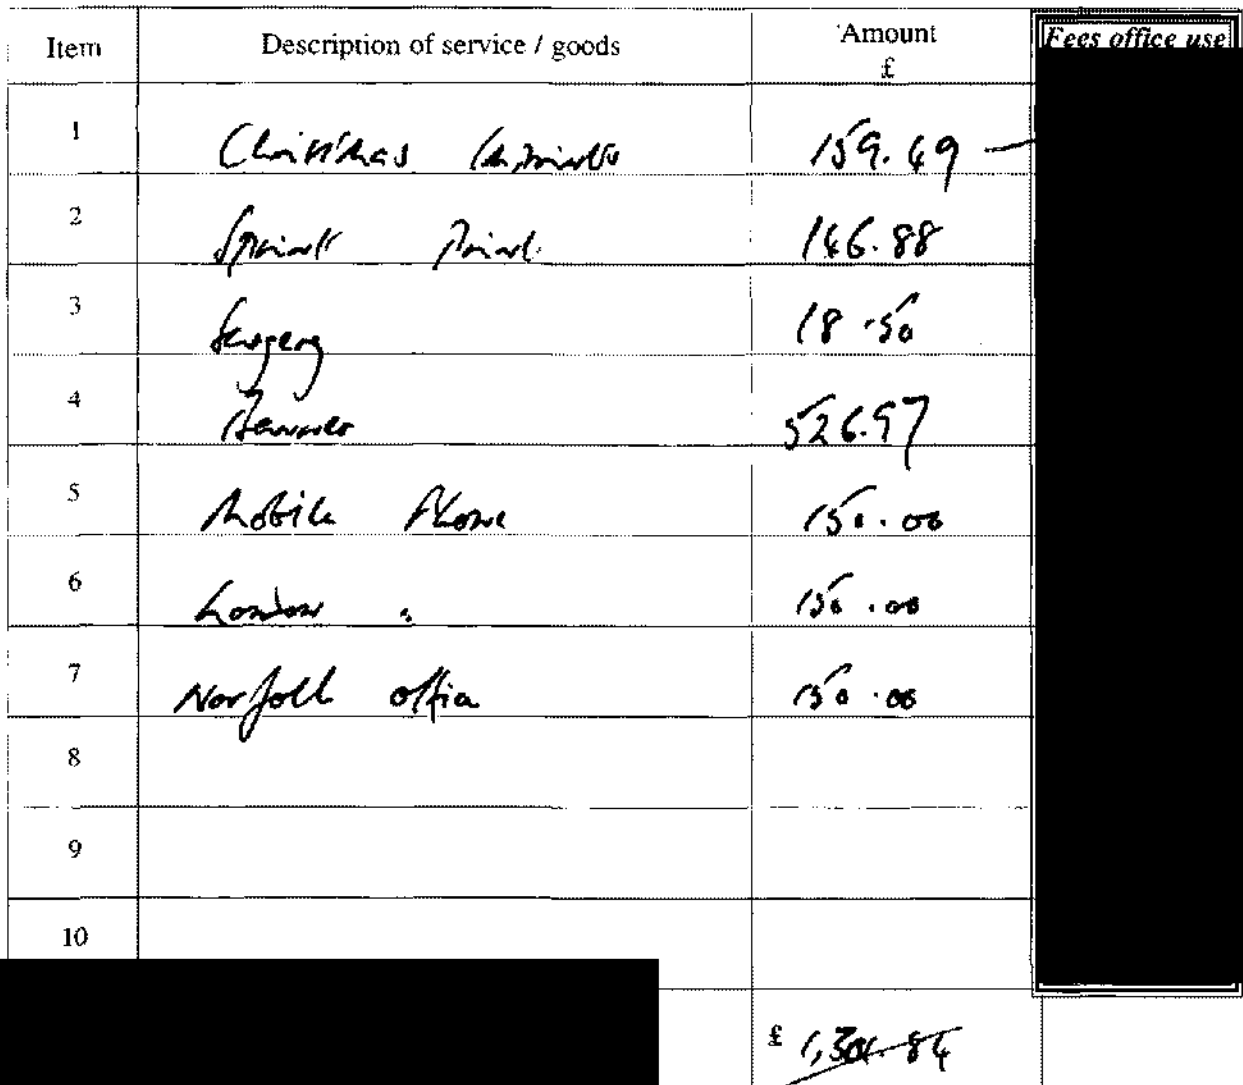 Item Description of service / goods Amount £ Fees office use
1 Christmas 159.49
2 146.88
3 Surgery 18.50
4 526.97
5 Mobile Phone 150.00
6 London " 150.00
7 Norfolk office 150.00
8
9
10
£ 1,301.84